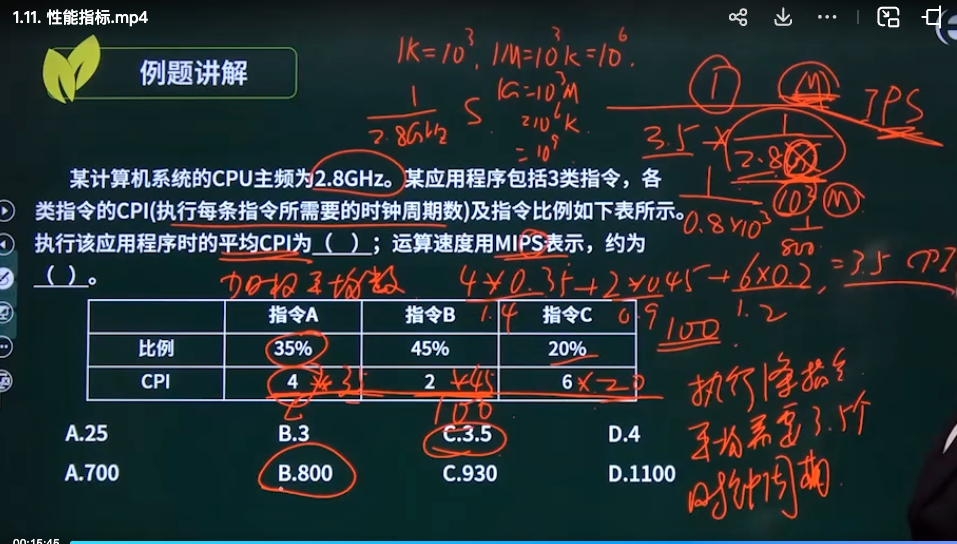 1.11. 性能指标.mp4
例题讲解
1K=10³, 1M=10³K=10⁶.
1G=10³M
=10⁶K
=10⁹
1
2.8GHz
S
1
M
IPS
3.5 ×
1
2.8
10³
M
1
0.8×10³
1
800
某计算机系统的CPU主频为2.8GHz。某应用程序包括3类指令，各
类指令的CPI(执行每条指令所需要的时钟周期数)及指令比例如下表所示。
执行该应用程序时的平均CPI为（ ）；运算速度用MIPS表示，约为
（ ）。
加权平均数
4×0.35+2×0.45+6×0.2, =3.5 CPI
1.4 0.9 1.2
100
指令A 指令B 指令C
比例 35% 45% 20%
CPI 4 ×35 2 ×45 6 ×20
100
A.25 B.3 C.3.5 D.4
A.700 B.800 C.930 D.1100
执行1条指令
平均需要3.5个
时钟周期
00:15:45